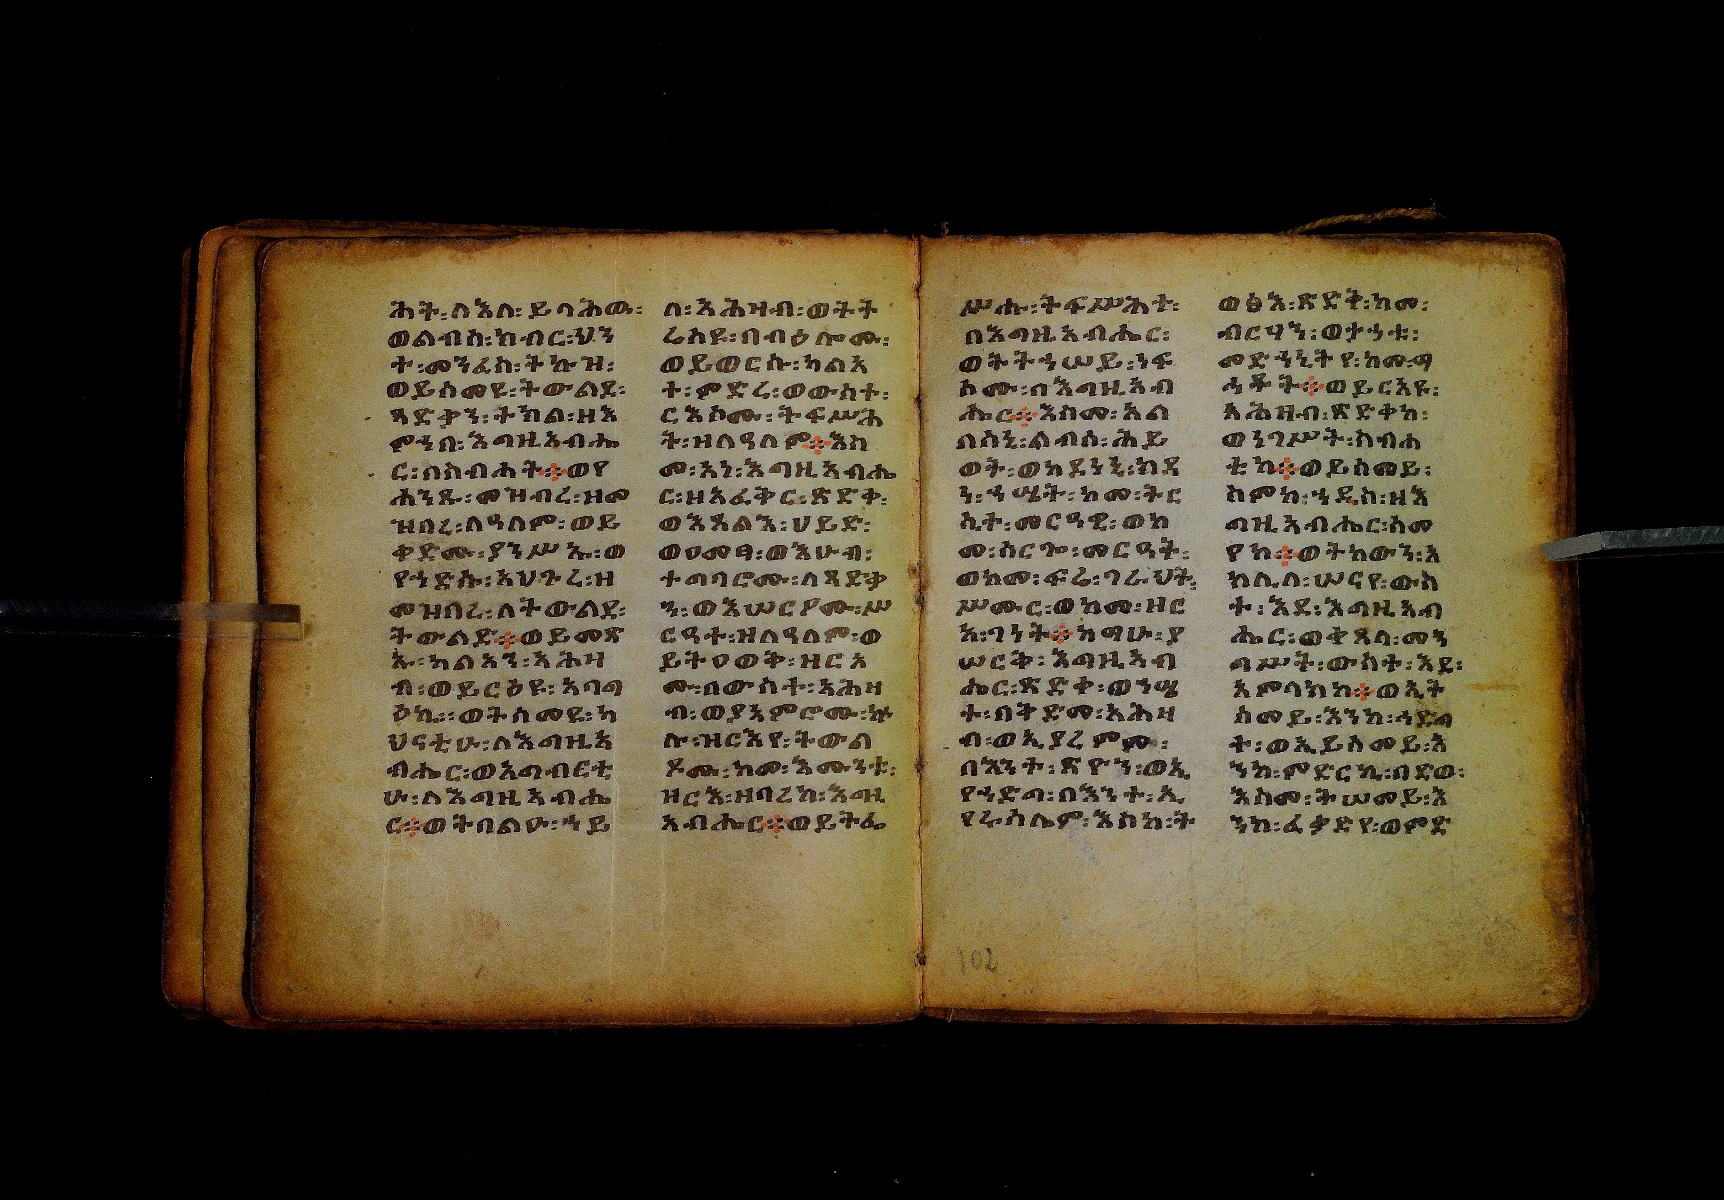 ሕት፡ለእለ፡ይላሕዉ፡
ወልብሰ፡ክብር፡ህን
ተ፡መንፈስ፡ትኩዝ፡
ወይሰመዩ፡ትውልደ፡
ጻድቃን፡ትክል፡ዘእ
ምኀበ፡እግዚአብሔ
ር፡በስብሐት፨ወየ
ሐንጹ፡መዝብረ፡ዘመ
ዝበረ፡ለዓለም፡ወይ
ቀድሙ፡ያንሥኡ፡ወ
የኀድሱ፡አህጉረ፡ዘ
መዝበረ፡ለትውልደ፡
ትውልድ፨ወይመጽ
ኡ፡ካልአን፡አሕዛ
ብ፡ወይርዕዩ፡አባግ
ዕኪ፡፡ወትሰመዩ፡ካ
ህናቲሁ፡ለእግዚአ
ብሔር፡ወአግብርቲ
ሁ፡ለእግዚአብሔ
ር፨ወትበልዑ፡ኀይ
ለ፡አሕዛብ፡ወትት
ሬሰዩ፡በብዕሎሙ፡
ወይወርሱ፡ካልአ
ተ፡ምድረ፡ወውስተ፡
ርእስሙ፡ትፍሥሕ
ት፡ዘለዓለም፨እስ
መ፡አነ፡እግዚአብሔ
ር፡ዘአፈቅር፡ጽድቀ፡
ወእጸልእ፡ሀይድ፡
ወዐመፃ፡ወእሁብ፡
ተግባሮሙ፡ለጻድቃ
ን፡ወእሠርዮሙ፡ሥ
ርዓተ፡ዘለዓለም፡ወ
ይትዐወቅ፡ዘርአ
ሙ፡በውስተ፡አሕዛ
ብ፡ወያአምሮሙ፡ኵ
ሉ፡ዝርእየ፡ትውል
ዶሙ፡ከመ፡እሙንቱ፡
ዘርእ፡ዘባረከ፡እግዚ
አብሔር፨ወይትፌ
ሥሑ፡ትፍሥሕተ፡
በእግዚአብሔር፡
ወትትኀሠይ፡ነፍ
ስሙ፡በእግዚአብ
ሔር፨እስመ፡አል
በሰኒ፡ልብሰ፡ሕይ
ወት፡ወከደነኒ፡ክዳ
ነ፡ኀሤት፡ከመ፡ትር
ሲተ፡መርዓዊ፡ወከ
መ፡ስርጉ፡መርዓት፡
ወከመ፡ፍሬ፡ገራህት፡
ሥሙር፡ወከመ፡ዘር
አ፡ገነት፨ከማሁ፡ያ
ሠርቅ፡እግዚአብ
ሔር፡ጽድቀ፡ወኀሤ
ተ፡በቅድመ፡አሕዛ
ብ፡ወኢያረምም፡
በእንተ፡ጽዮን፡ወኢ
የኀድግ፡በእንተ፡ኢ
የሩሳሌም፡እስከ፡ት
ወፅእ፡ጽድቅ፡ከመ፡
ብርሃን፡ወታኅቱ፡
መድኀኒትየ፡ከመ፡ማ
ኅቶት፨ወይርእዩ፡
አሕዛብ፡ጽድቀከ፡
ወነገሥት፡ስብሐ
ቲከ፨ወይሰመይ፡
ስምከ፡ኀዲስ፡ዘእ
ግዚአብሔር፡ሰመ
የከ፨ወትከውን፡አ
ክሊለ፡ሠናየ፡ውስ
ተ፡እደ፡እግዚአብ
ሔር፡ወቀጸላ፡መን
ግሥት፡ውስተ፡እደ፡
አምላክከ፨ወኢት
ሰመይ፡እንከ፡ኅድግ
ተ፡ወኢይሰመይ፡እ
ንከ፡ምድርኪ፡በደወ፡
እስመ፡ትሠመይ፡እ
ንከ፡ፈቃድየ፡ወምድ
102